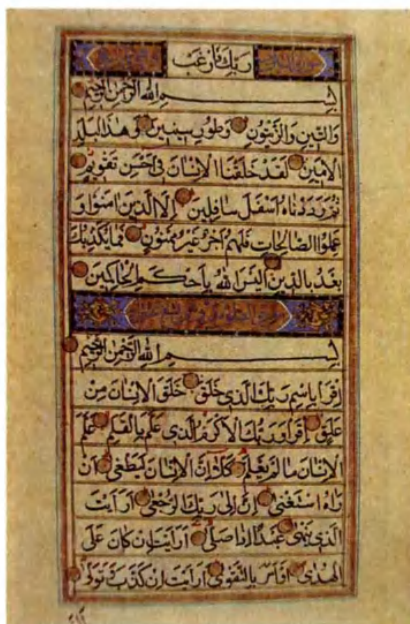 رَبِّكَ فَارْغَبْ
بِسْمِ اللهِ الرَّحْمٰنِ الرَّحِيمِ
وَالتِّينِ وَالزَّيْتُونِ وَطُورِ سِينِينَ وَهٰذَا الْبَلَدِ
الْاَمِينِ لَقَدْ خَلَقْنَا الْاِنْسَانَ فِى اَحْسَنِ تَقْوِيمٍ
ثُمَّ رَدَدْنَاهُ اَسْفَلَ سَافِلِينَ اِلَّا الَّذِينَ اٰمَنُوا وَ
عَمِلُوا الصَّالِحَاتِ فَلَهُمْ اَجْرٌ غَيْرُ مَمْنُونٍ فَمَا يُكَذِّبُكَ
بَعْدُ بِالدِّينِ اَلَيْسَ اللهُ بِاَحْكَمِ الْحَاكِمِينَ
بِسْمِ اللهِ الرَّحْمٰنِ الرَّحِيمِ
اِقْرَا بِاسْمِ رَبِّكَ الَّذِى خَلَقَ خَلَقَ الْاِنْسَانَ مِنْ
عَلَقٍ اِقْرَا وَرَبُّكَ الْاَكْرَمُ الَّذِى عَلَّمَ بِالْقَلَمِ عَلَّمَ
الْاِنْسَانَ مَا لَمْ يَعْلَمْ كَلَّا اِنَّ الْاِنْسَانَ لَيَطْغٰى اَنْ
رَاٰهُ اسْتَغْنٰى اِنَّ اِلٰى رَبِّكَ الرُّجْعٰى اَرَاَيْتَ
الَّذِى يَنْهٰى عَبْدًا اِذَا صَلّٰى اَرَاَيْتَ اِنْ كَانَ عَلَى
الْهُدٰى اَوْ اَمَرَ بِالتَّقْوٰى اَرَاَيْتَ اِنْ كَذَّبَ وَتَوَلّٰى